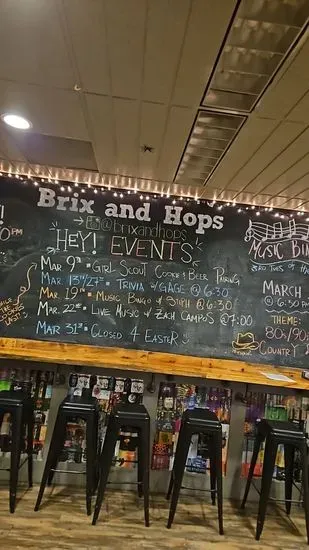 Brix and Hops
@brixandhops
HEY! EVENTS
MAR 9th: GIRL SCOUT COOKIE & BEER PAIRING
MAR 13th/27th: TRIVIA w/GAGE @ 6:30
MAR 19th: MUSIC BINGO w/ STEPH @ 6:30
MAR 22nd: LIVE MUSIC w/ ZACH CAMPOS @ 7:00
MAR 31st: CLOSED 4 EASTER
PM
LAST
MUSIC BIN
3RD TUES OF
MARCH
@ 6:30 PM
THEME:
80s/90s
COUNTRY